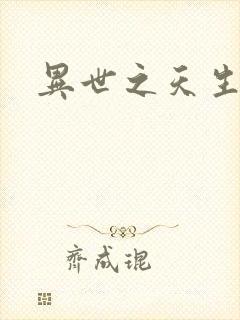 異世之天生
齊成琨